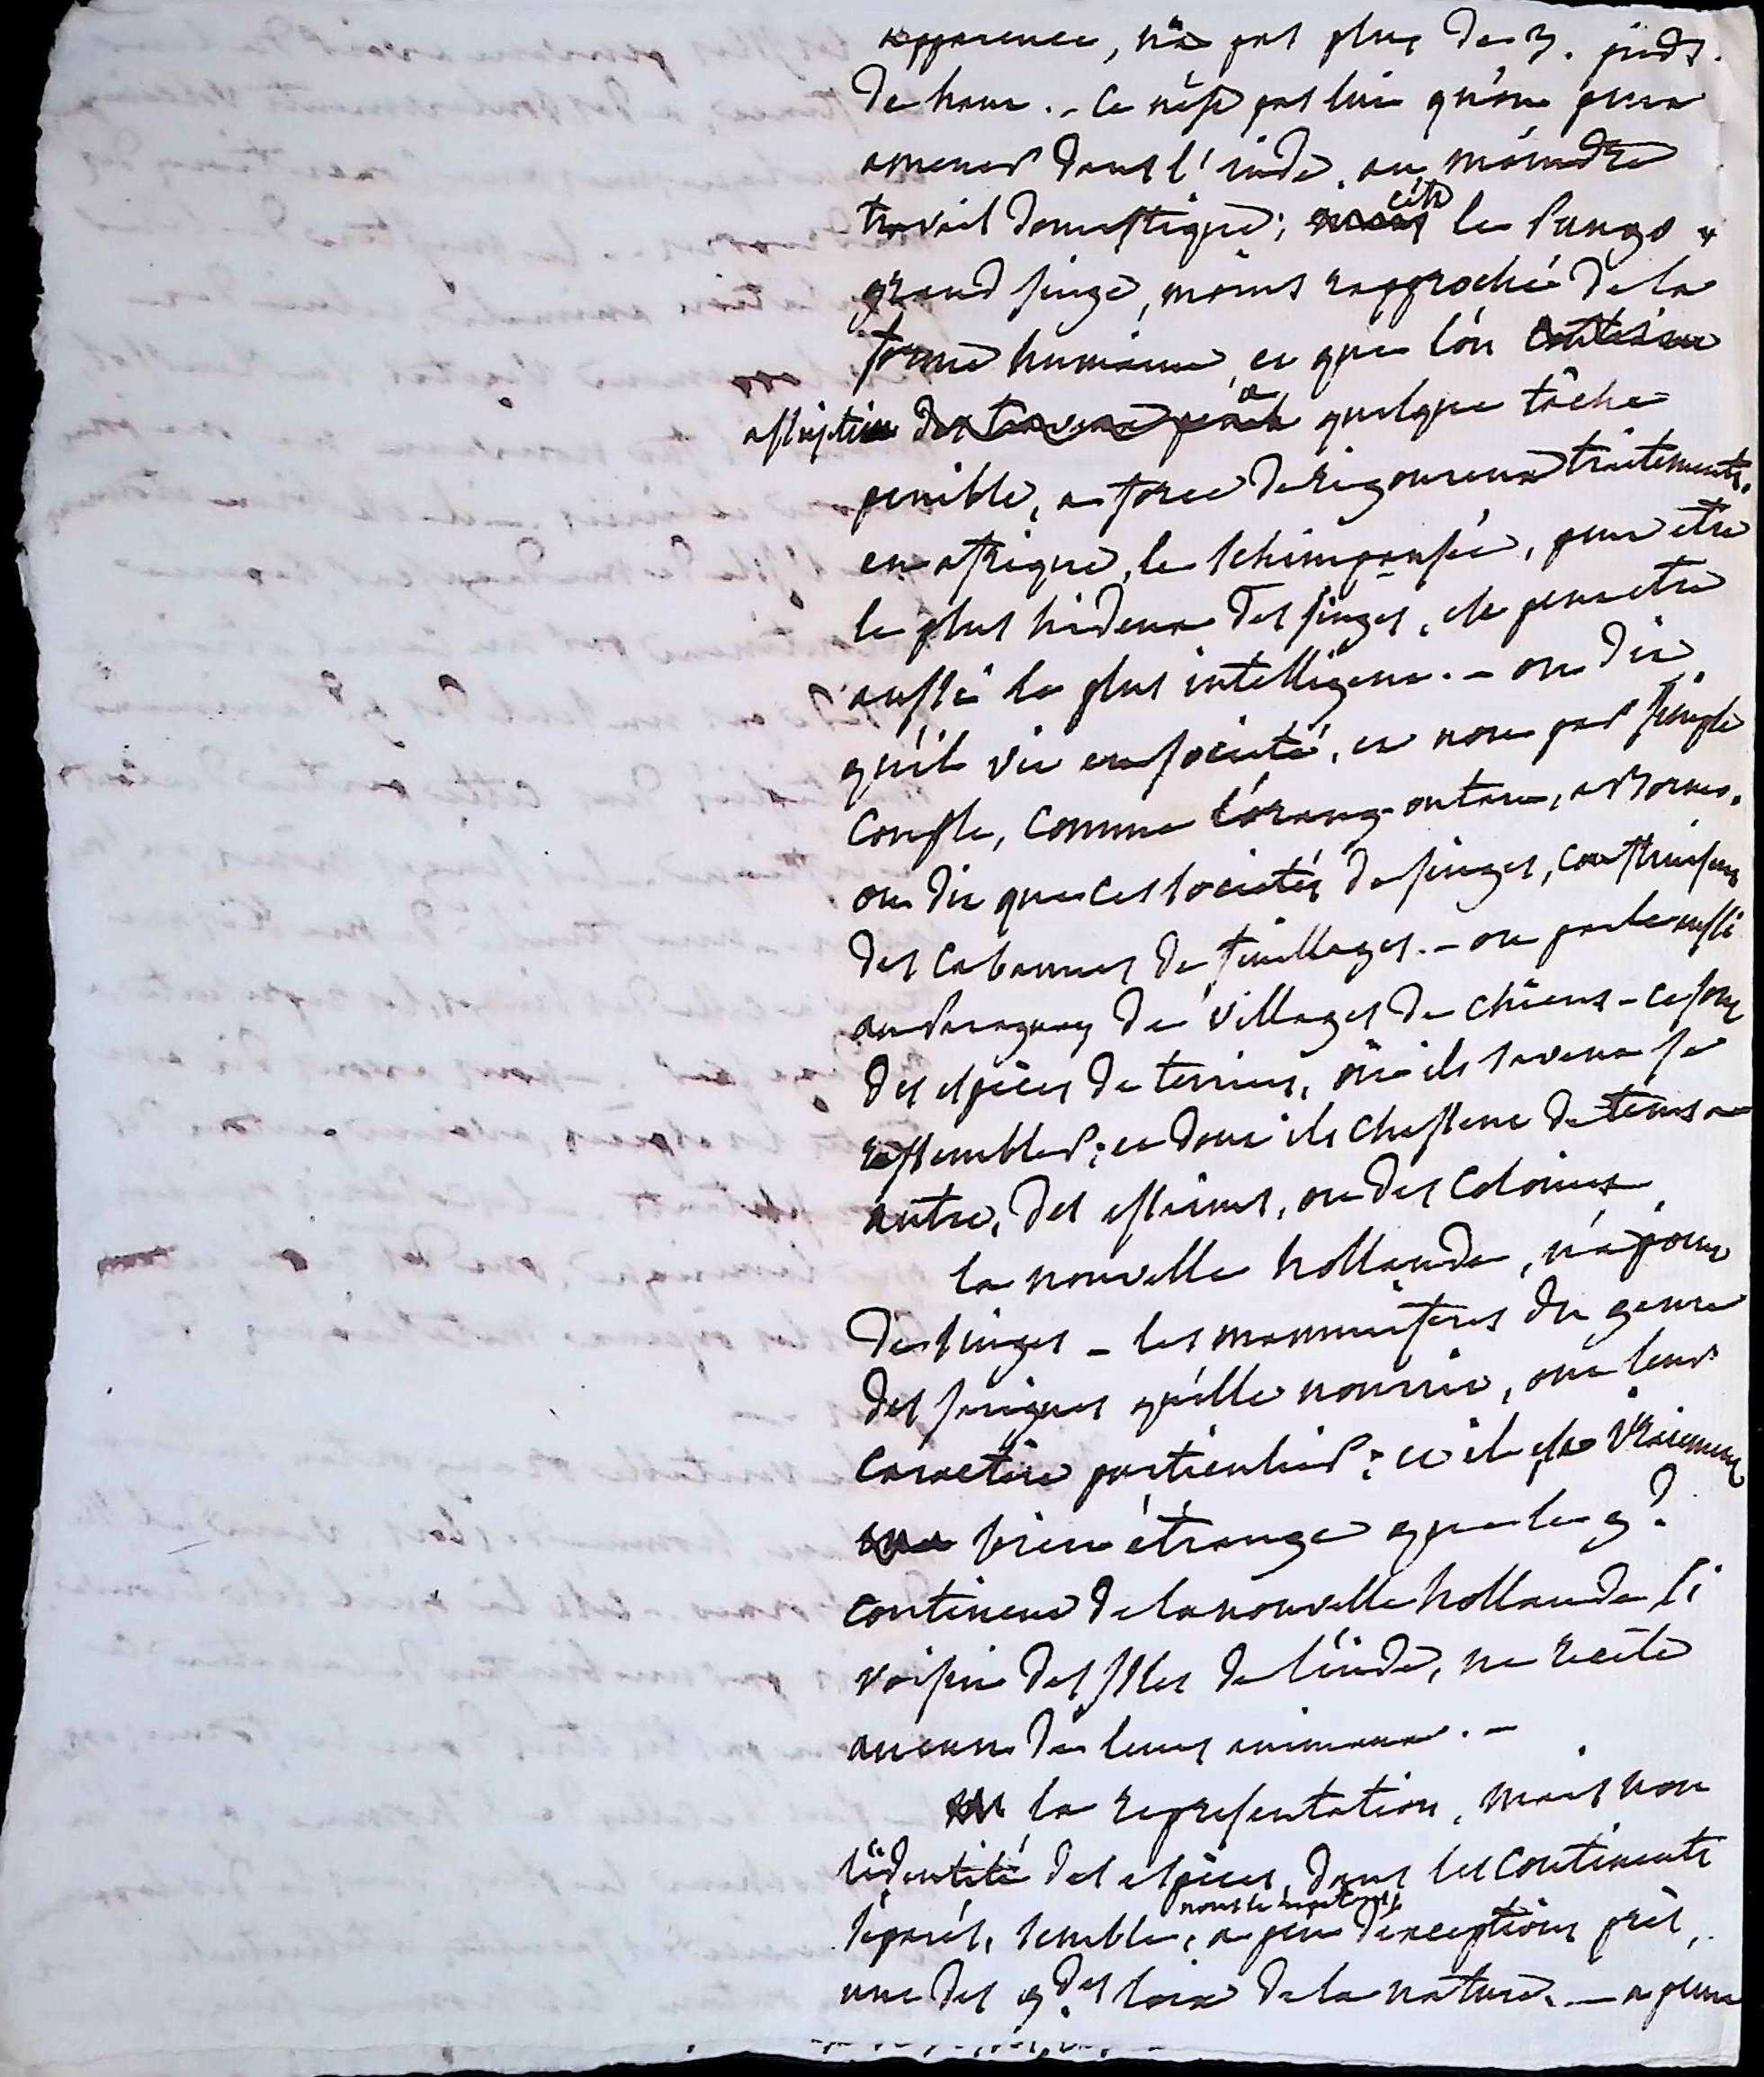 apparence, n'a pas plus de 3. pieds.
de haut. – ce n'est pas lui qu'on peut
amener dans l'inde, au moindre
travail domestique; c'est le Pongo
grand singe, moins rapproché de la
forme humaine, et que l'on
assujetti à quelque tâche
penible, a force de rigoureux traitements.
en afrique, le schimpansée, peut etre
le plus hideux des singes, est peut etre
aussi le plus intelligent. – on dit
qu'il vit en societé, et non par simple
couple, comme l'orang-outan, a Borneo.
on dit que ces societés de singes, construisent
des cabannes de feuillages. – on parle aussi
au Paraguay de villages de chiens – ce sont
des espèces de terriers, où ils savent se
rassembler; et dont ils chassent de tems a
autre, des essaims, ou des colonies
la nouvelle hollande, n'a point
de singes – les mammifères du genre
des sarigues qu'elle nourrit, ont leur
caractère particulier; et il est vraiment
bien étrange que le g.d
continent de la nouvelle hollande si
voisin des Isles de l'inde, ne recèle
aucun de leurs animaux. –
la representation, mais non
l'identité des espèces, dans les continents
nous le repetons,
séparés, semble, a peu d'exceptions près,
une des g.des loix de la nature. — a peine